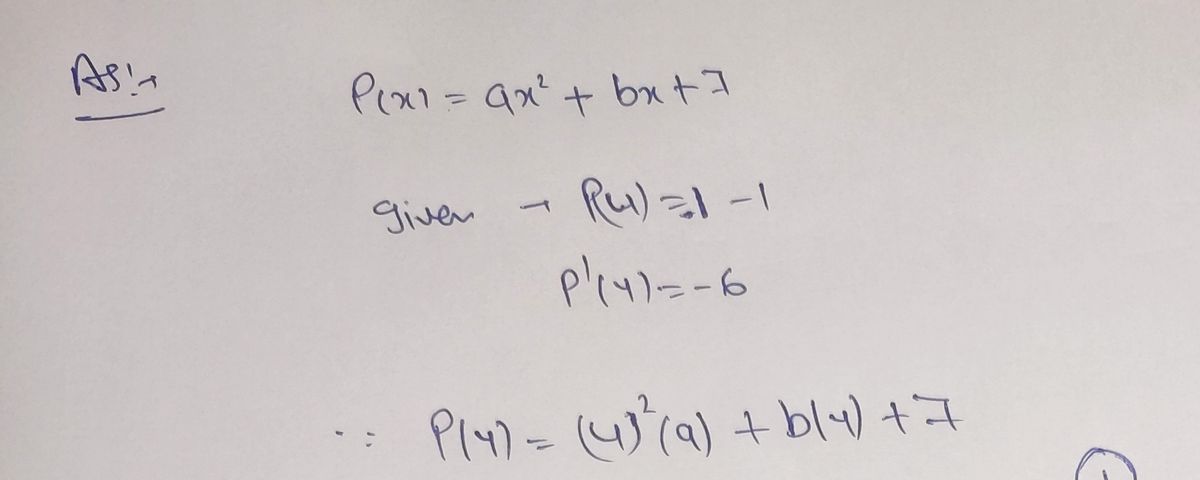 As:→
P(x) = ax² + bx + 7
given → P(4) = 1 - 1
P'(4) = -6
∵ P(4) = (4)²(a) + b(4) + 7